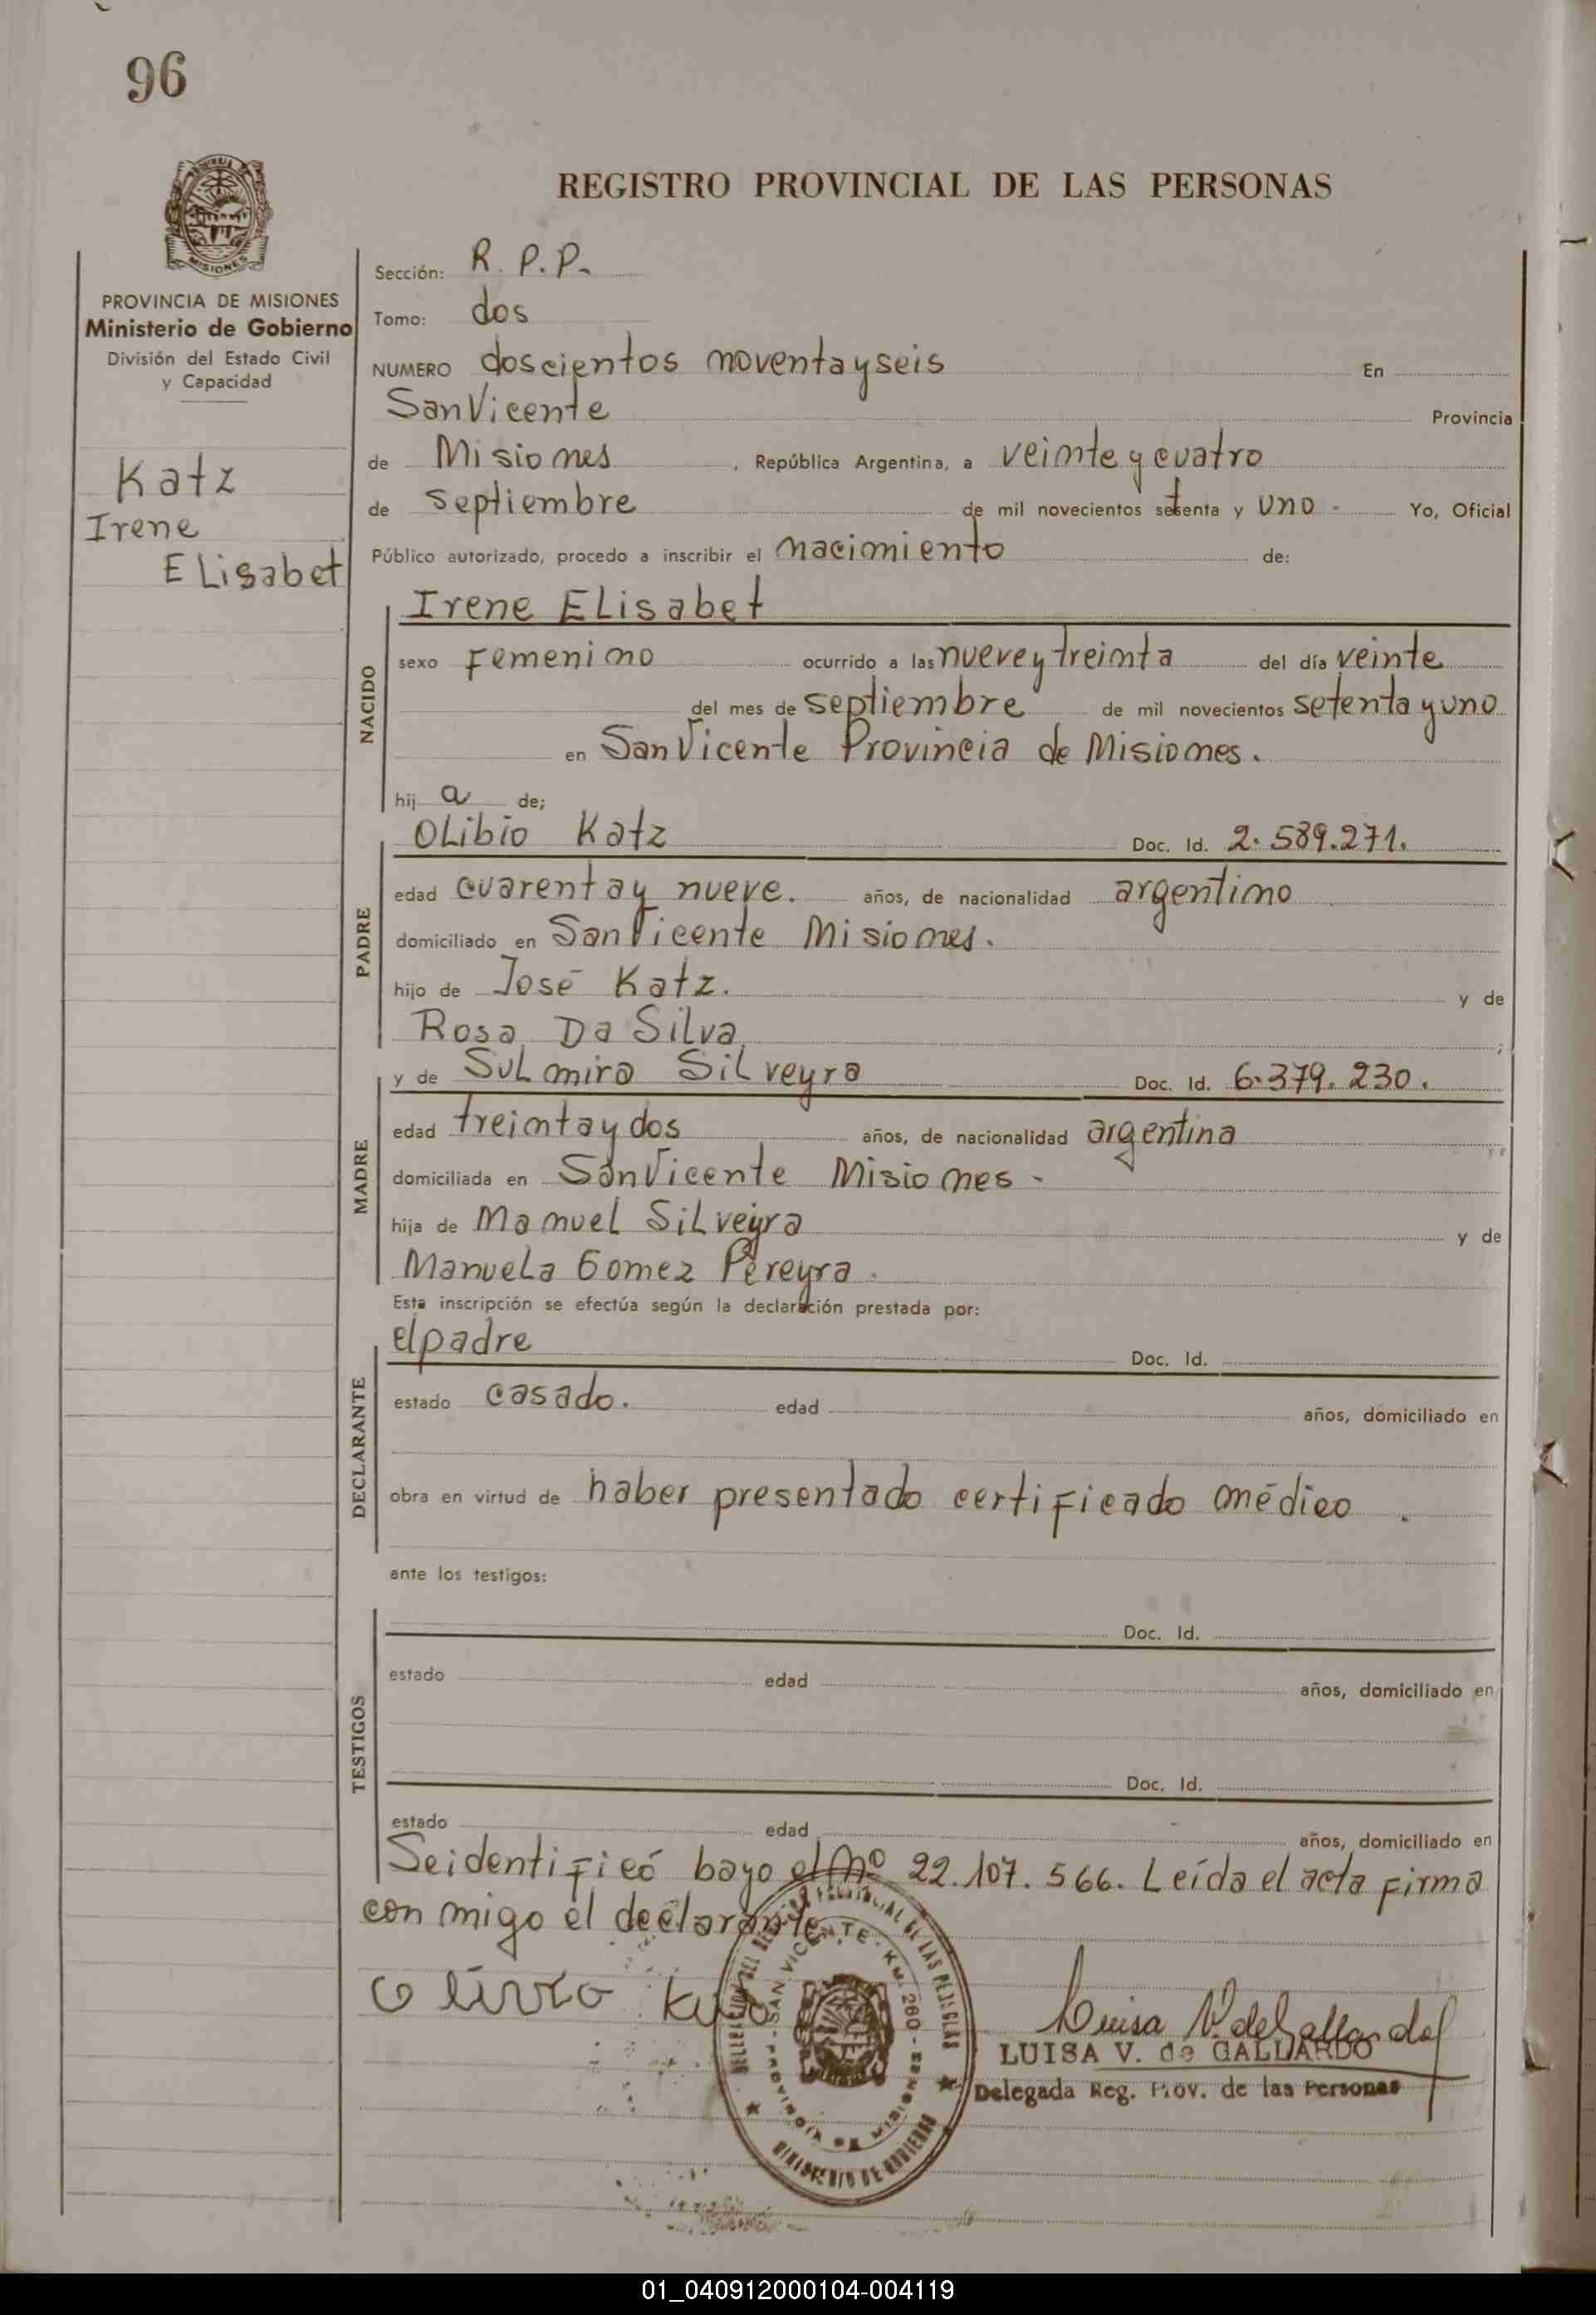 96
REGISTRO PROVINCIAL DE LAS PERSONAS
MISIONES
PROVINCIA DE MISIONES
Ministerio de Gobierno
División del Estado Civil
y Capacidad
Katz
Irene
ELisabet
Sección: R. P. P.
Tomo: dos
NUMERO doscientos noventa y seis En
San Vicente Provincia
de Misiones, República Argentina, a veinte y cuatro
de septiembre de mil novecientos setenta y uno - Yo, Oficial
Público autorizado, procedo a inscribir el nacimiento de:
NACIDO
Irene ELisabet
sexo Femenino ocurrido a las nueve y treinta del día veinte
del mes de septiembre de mil novecientos setenta y uno
en San Vicente Provincia de Misiones.
hij a de;
PADRE
OLibio Katz Doc. Id. 2.589.271.
edad cuarenta y nueve. años, de nacionalidad argentino
domiciliado en San Vicente Misiones.
hijo de José Katz. y de
Rosa Da Silva ;
MADRE
y de SuLmira SiLveyra Doc. Id. 6.379.230.
edad treinta y dos años, de nacionalidad argentina
domiciliada en San Vicente Misiones -
hija de Manuel SiLveyra y de
ManueLa Gomez Pereyra.
Esta inscripción se efectúa según la declaración prestada por:
DECLARANTE
el padre Doc. Id.
estado casado. edad años, domiciliado en
obra en virtud de haber presentado certificado médico.
ante los testigos:
TESTIGOS
Doc. Id.
estado edad años, domiciliado en
Doc. Id.
estado edad años, domiciliado en
Se identificó bayo el Nº 22.107.566. Leída el acta firma
con migo el declarante
SAN VICENTE - KM. 260 - PROVINCIA DE MISIONES
MINISTERIO DE GOBIERNO
Luisa V. de Gallardo
LUISA V. de GALLARDO
Delegada Reg. Prov. de las Personas
01_040912000104-004119